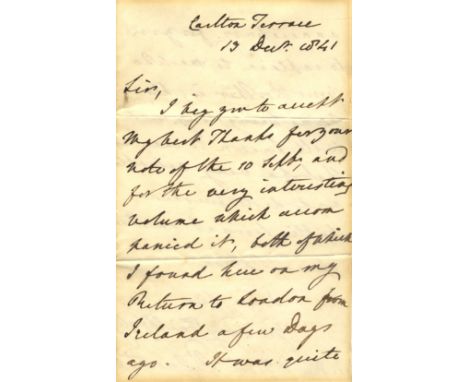 Carlton Terrace
13 Decr. 1841
Sir,
I beg you to accept
my best Thanks for your
note of the 10 Septr, and
for the very interesting
volume which accom
panied it, both of which
I found here on my
Return to London from
Ireland a few Days
ago. It was quite